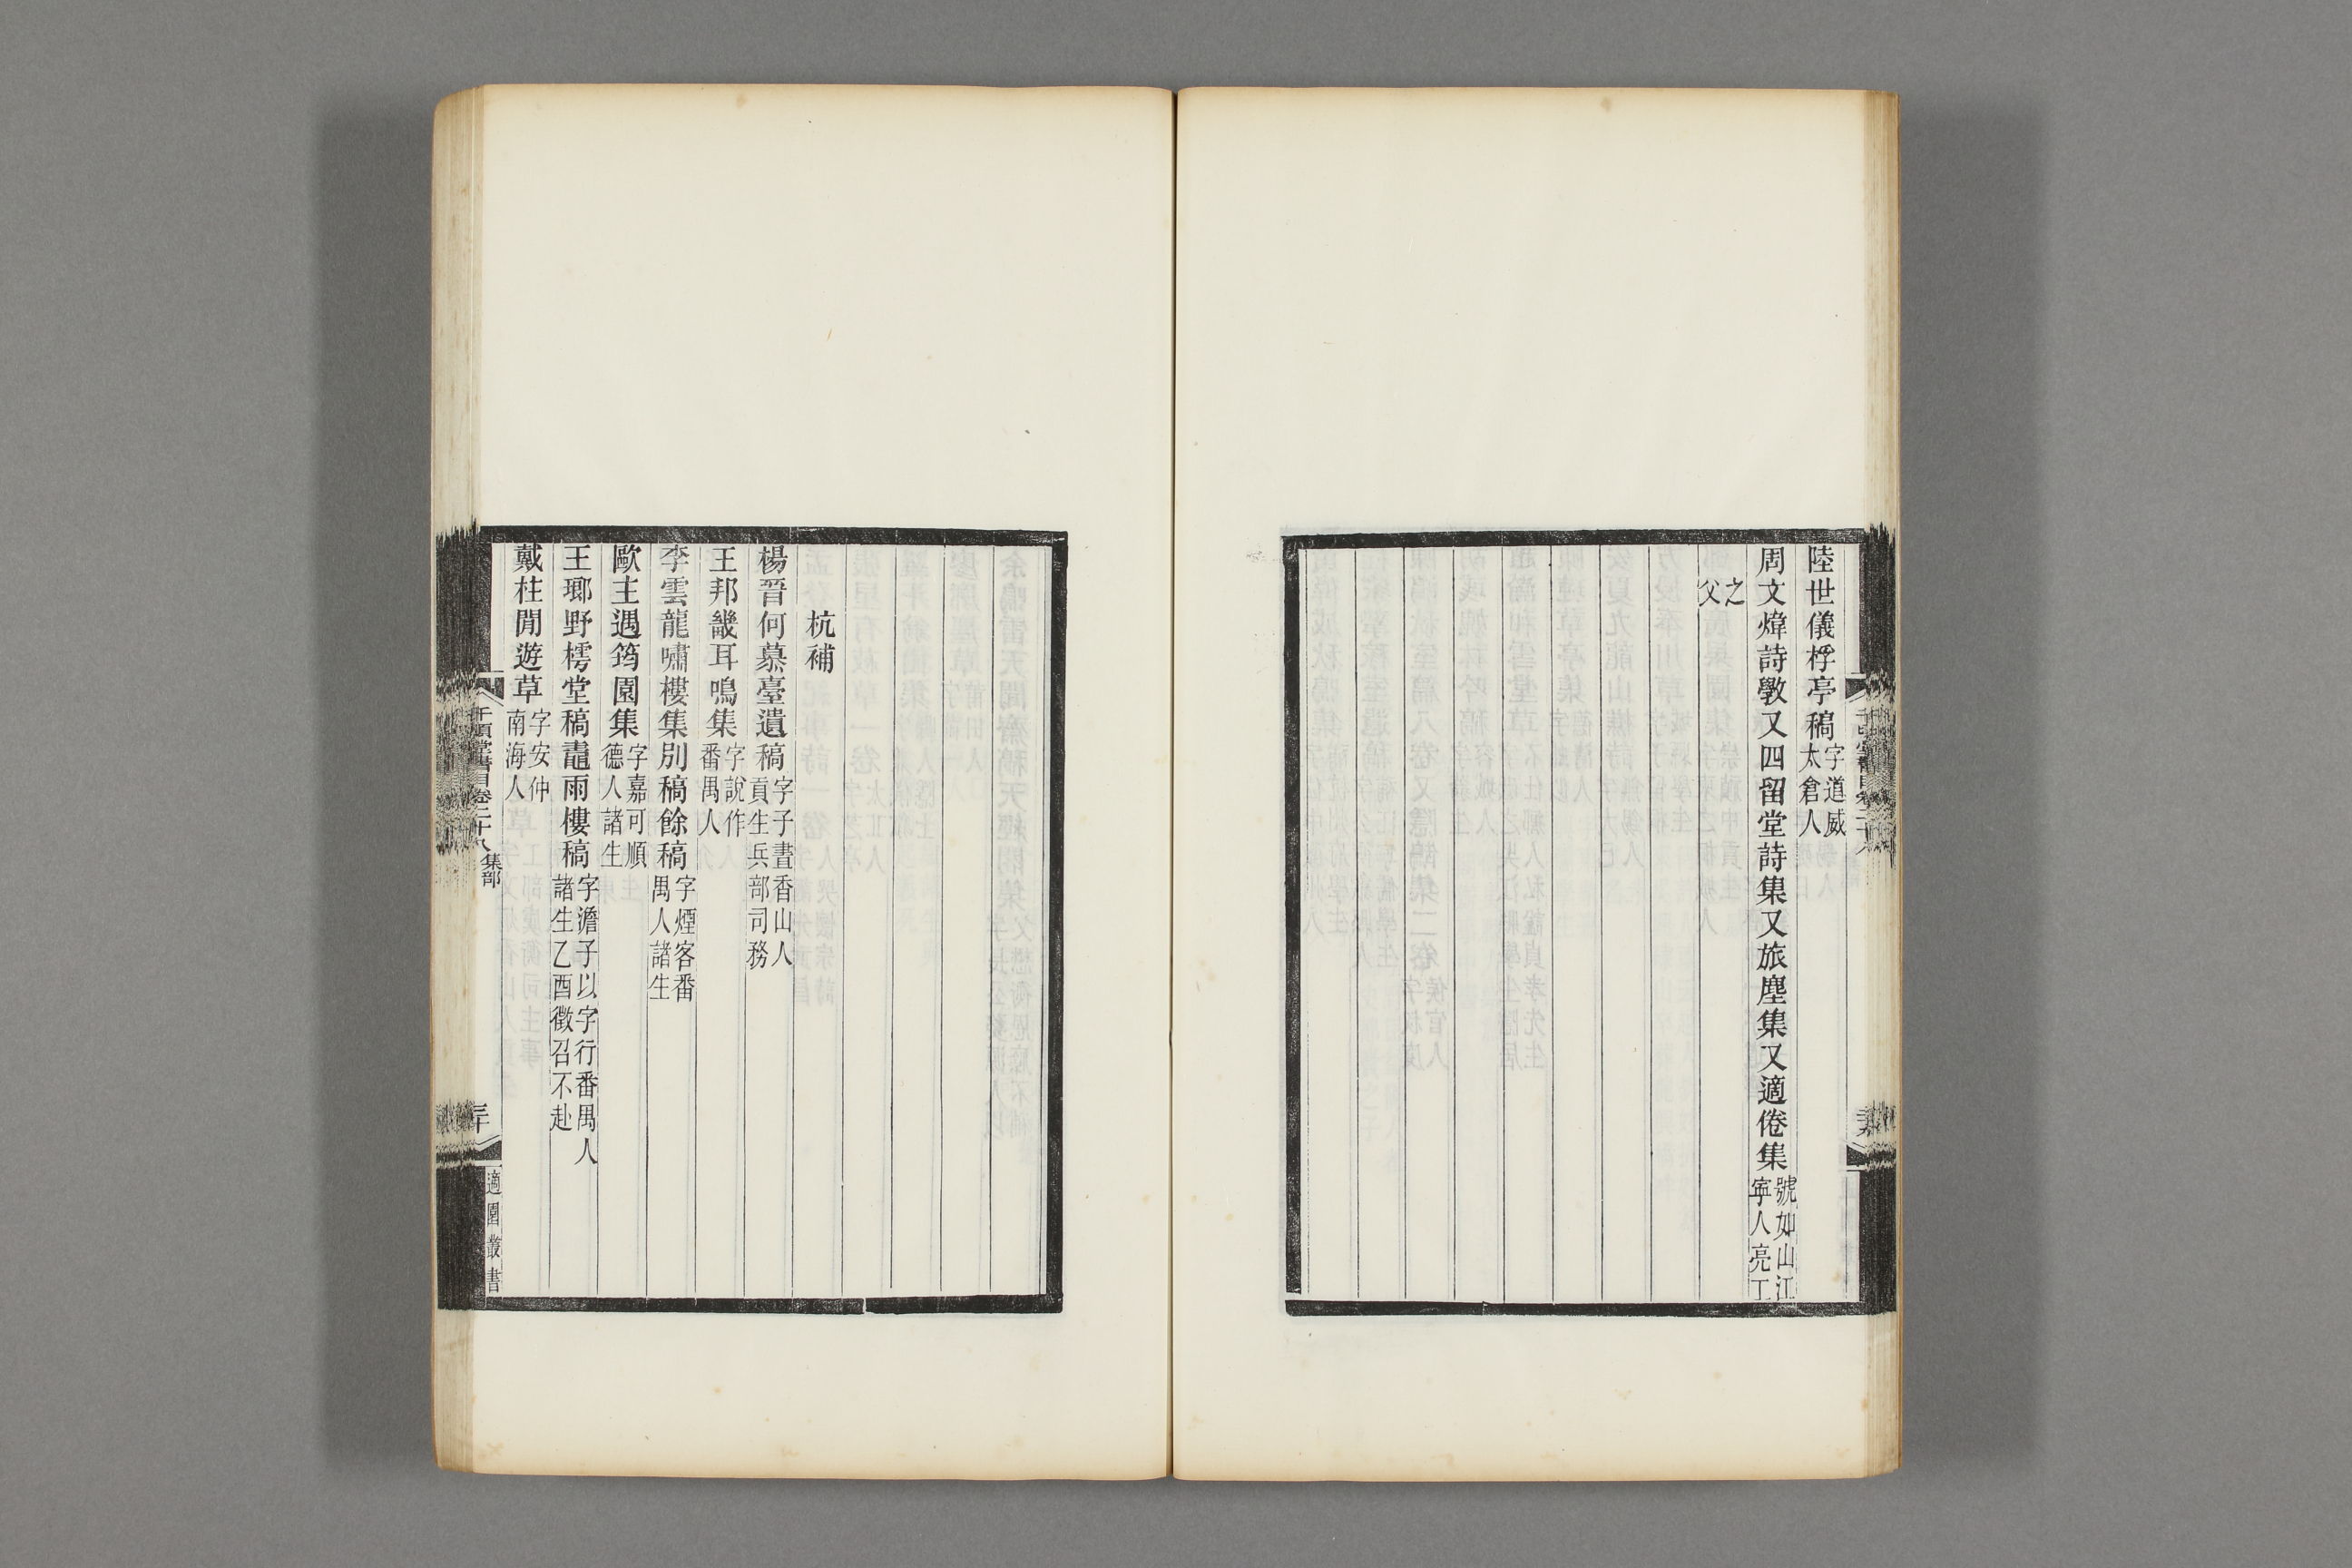 陸世儀桴亭稿字道威太倉人
周文煒詩斆又四留堂詩集又旅塵集又適倦集號如山江寧人亮工
之父
杭補
楊晉何慕臺遺稿字子晝香山人貢生兵部司務
王邦畿耳鳴集字說作番禺人
李雲龍嘯樓集別稿餘稿字煙客番禺人諸生
歐主遇筠園集字嘉可順德人諸生
王瑯野樗堂稿鼃雨樓稿字澹子以字行番禺人諸生乙酉徵召不赴
戴柱閒遊草字安仲南海人
千頃堂書目卷二十八 集部
三十
適園叢書